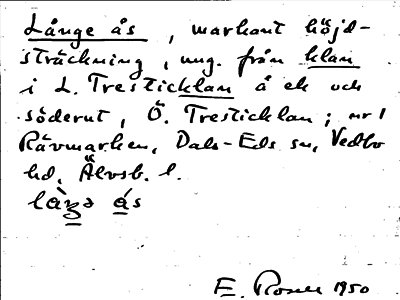 Långe ås, markant höjd-
sträckning, ung. från klan
i L. Tresticklan å ek och
söderut, Ö. Tresticklan; nr 1
Rävmarken, Dals-Eds sn, Vedbo
hd, Älvsb. l.
ás
E. Rosen 1950